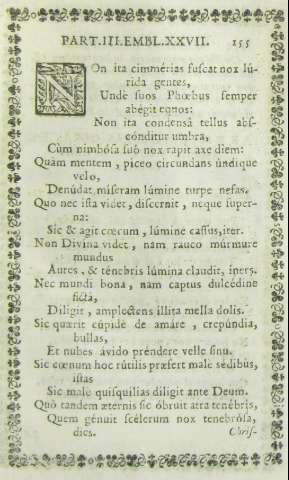 PART.III.EMBL.XXVII. 155
NOn ita cimmérias fuscat nox lú-
rida gentes,
Unde suos Phœbus semper
abégit equos:
Non ita condensâ tellus abs-
cónditur umbra,
Cùm nimbósa sub nox rapit axe diem:
Quàm mentem, piceo circundans úndique
velo,
Denúdat miseram lúmine turpe nefas.
Quo nec ista videt, discernit, neque super-
na:
Sic & agit cœcum, lúmine cassus, iter.
Non Divina videt, nam rauco múrmure
mundus
Aures, & ténebris lúmina claudit, iners.
Nec mundi bona, nam captus dulcédine
fictâ,
Diligit, amplectens illita mella dolis.
Sic quærit cúpidè de amáre, crepúndia,
bullas,
Et nubes ávido préndere velle sinu.
Sic cœnum hoc rútilis præfert malè sédibus,
istas
Sic malè quisquilias diligit ante Deum.
Quò tandem æternis sic óbruit atra tenébris,
Quem génuit scélerum nox tenebrósa,
dies.
Chris-